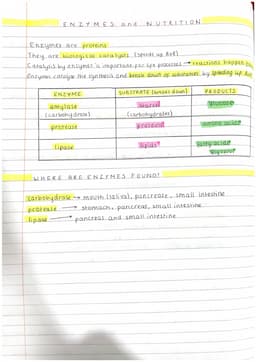 ENZYMES and NUTRITION
Enzymes are proteins
They are biological catalysts (speeds up RoR)
Catalysis by enzymes is important for life processes → reactions happen
Enzymes catalyse the synthesis and break down of substances by speeding up
ENZYME SUBSTRATE (broken down) PRODUCTS
amylase starch glucose
(carbohydrase) (carbohydrates)
protease proteins amino acids
lipase lipids fatty acids
glycerol
WHERE ARE ENZYMES FOUND?
carbohydrase → mouth (saliva), pancreas, small intestine
protease → stomach, pancreas, small intestine
lipase → pancreas and small intestine